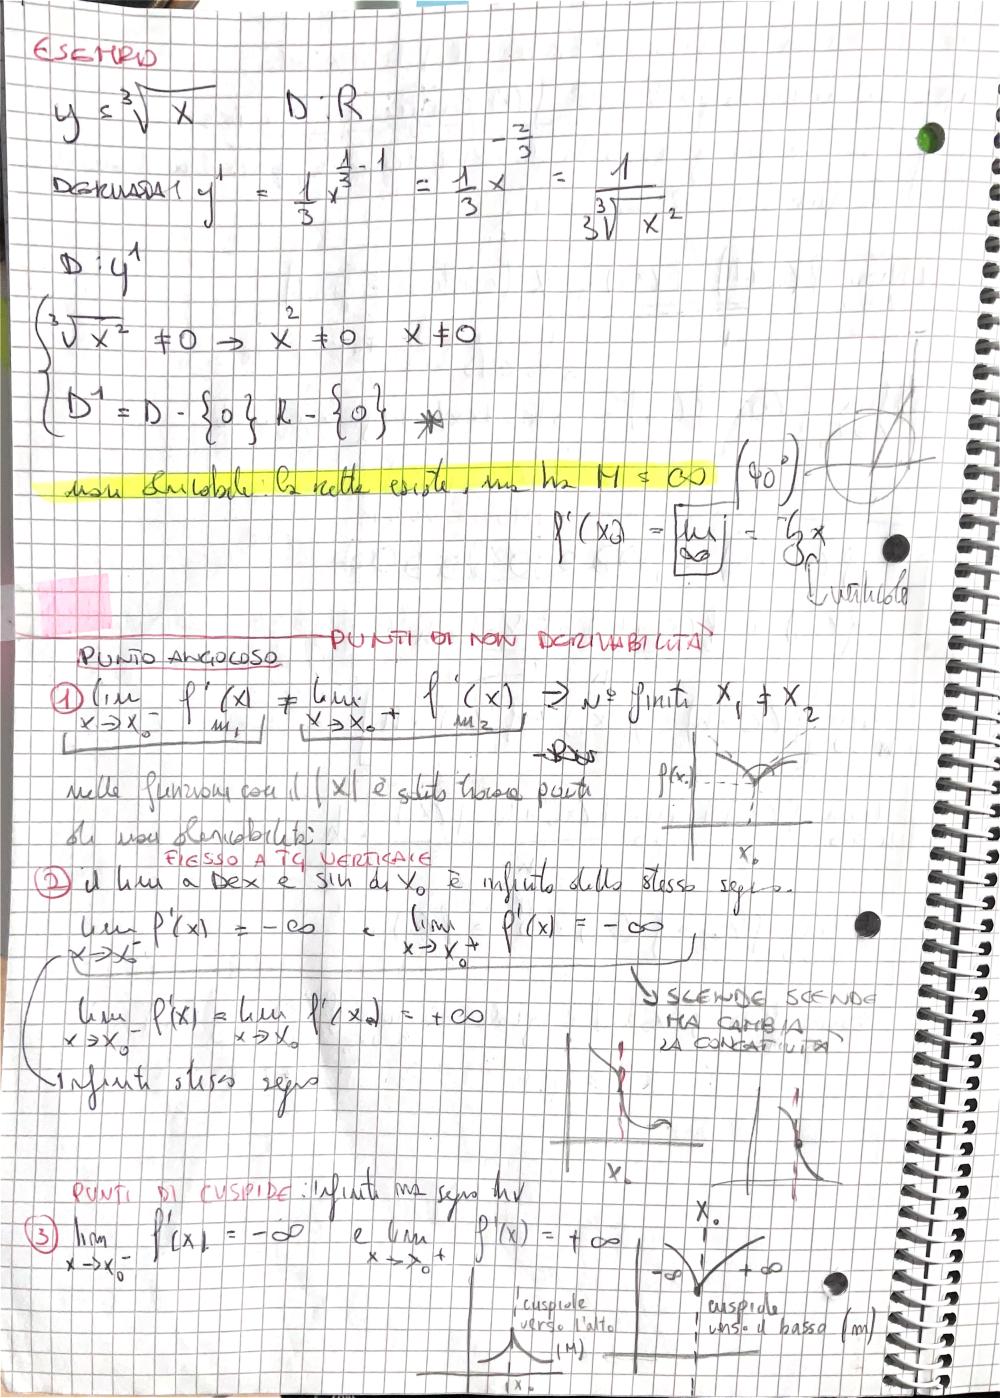 ESEMPIO
y = ∛x D : R
DERIVATA! y' = 1/3 x^(1/3 - 1) = 1/3 x^(-2/3) = 1/(3∛x²)
D : y'
∛x² ≠ 0 → x² ≠ 0 x ≠ 0
D' = D - {0} R - {0} *
non derivabile: la retta esiste, ma ha M = ∞ (90°)
f'(x₀) = m = tg x
∞
verticale
PUNTI DI NON DERIVABILITÀ
PUNTO ANGOLOSO
① lim x→x₀⁻ f'(x) ≠ lim x→x₀⁺ f'(x) ⇒ N° finiti x₁ ≠ x₂
m₁ m₂
nelle funzioni con il |x| è solito trovare punti
di non derivabilità
f(x₀)
x₀
FLESSO A TG VERTICALE
② il lim a Dex e sin di x₀ è infinito dello stesso segno.
lim x→x₀⁻ f'(x) = -∞ e lim x→x₀⁺ f'(x) = -∞
SCENDE SCENDE
MA CAMBIA
LA CONCAVITÀ
lim x→x₀⁻ f'(x) = lim x→x₀ f'(x₀) = +∞
infiniti stesso segno
x₀
x₀
PUNTI DI CUSPIDE: infiniti ma segno div
③ lim x→x₀⁻ f'(x) = -∞ e lim x→x₀⁺ f'(x) = +∞
-∞ +∞
cuspide
verso l'alto
(M)
x₀
cuspide
verso il basso (m)